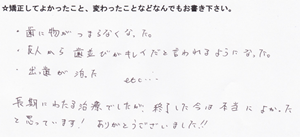 ☆矯正してよかったこと、変わったことなどなんでもお書き下さい。
・歯に物がつまらなくなった。
・友人から歯並びがキレイだと言われるようになった。
・出っ歯が治った
etc…
長期にわたる治療でしたが、終了した今は本当によかった
と思っています! ありがとうございました!!